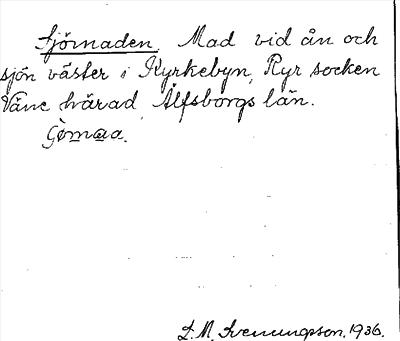 Sjörnaden. Mad vid ån och
sjön väster i Kyrkebyn, Ryr socken
Väne härad, Älfsborgs län.
L. M. Svenungsson. 1936.